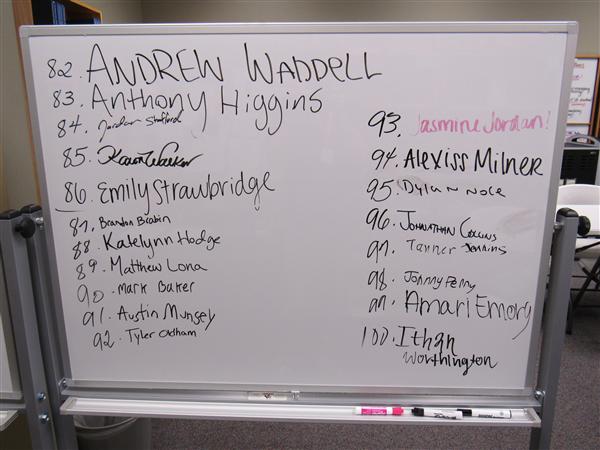 82. ANDREW WADDELL
83. Anthony Higgins
84. Jordan Stafford
85. Karon Walker
86. Emily Strawbridge
87. Brandon Brabin
88. Katelynn Hodge
89. Matthew Lona
90. mark Baker
91. Austin Munsey
92. Tyler Oldham
93. Jasmine Jordan!
94. Alexiss Milner
95. Dylan Nole
96. JOHNATHAN Collins
97. Tanner Jenkins
98. Johnny Perry
99. Amari Emory
100. Ithan
Worthington